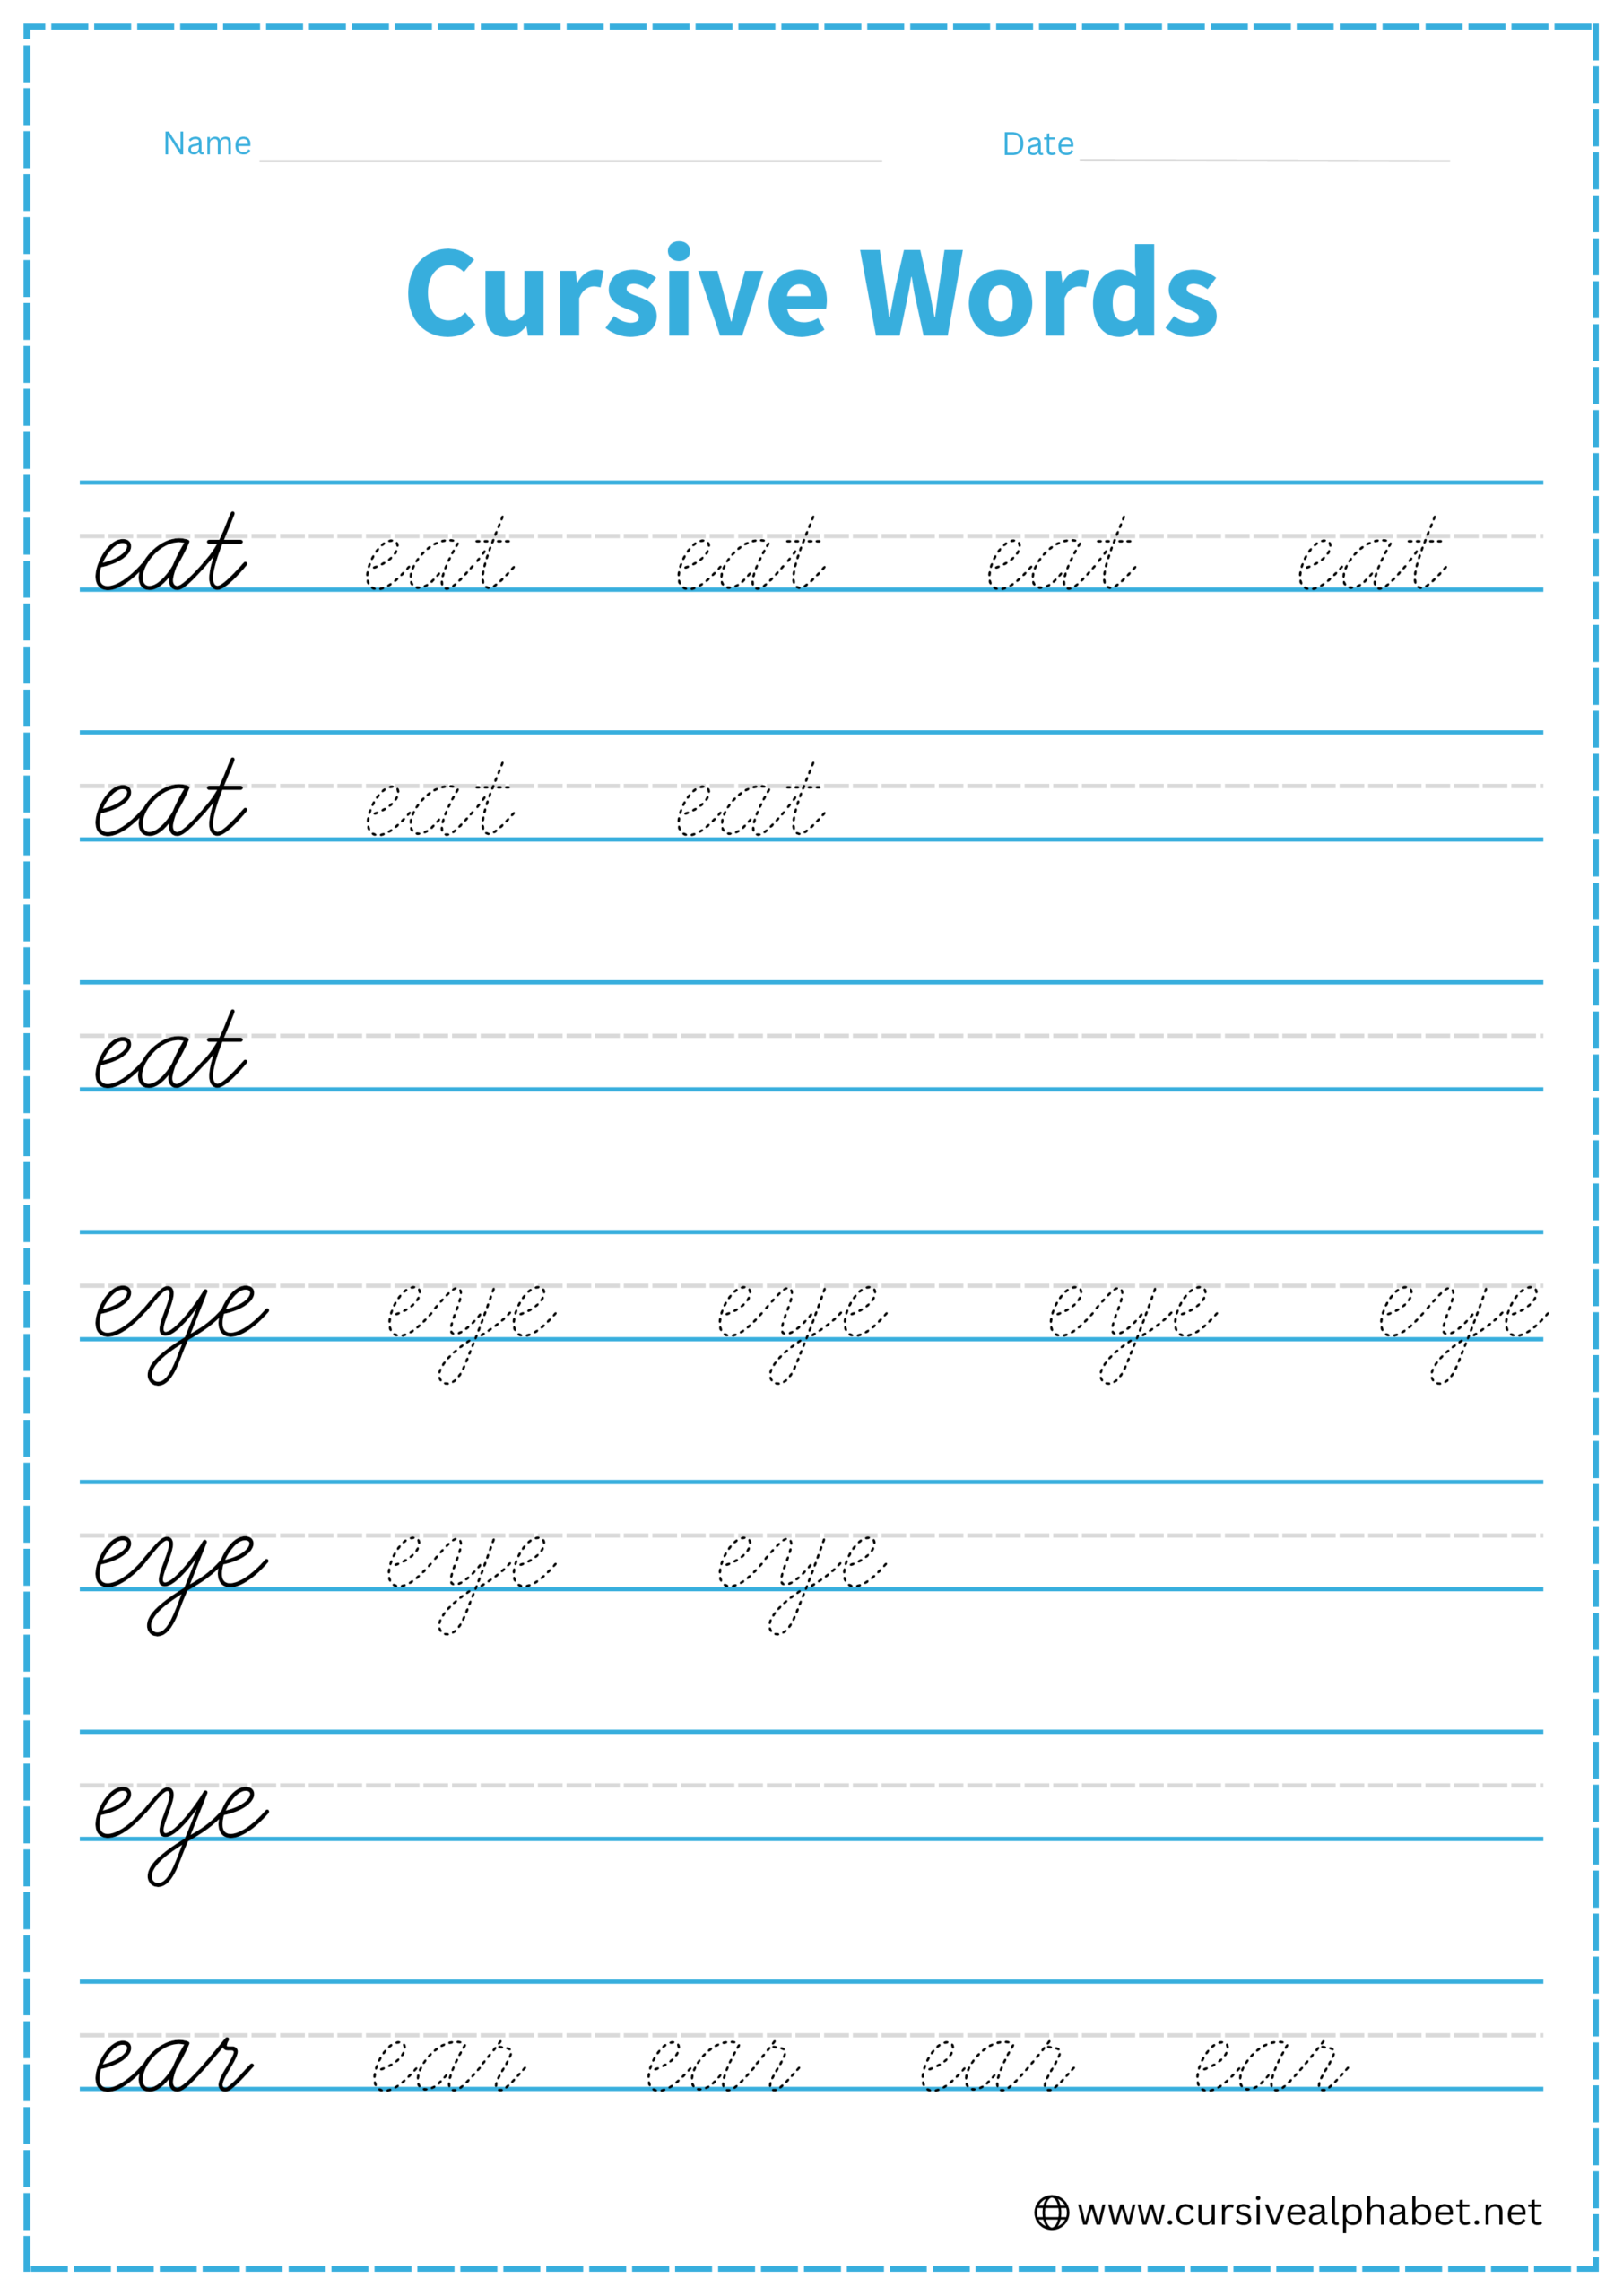 Name Date
Cursive Words
eat eat eat eat eat
eat eat eat
eat
eye eye eye eye eye
eye eye eye
eye
ear ear ear ear ear
www.cursivealphabet.net